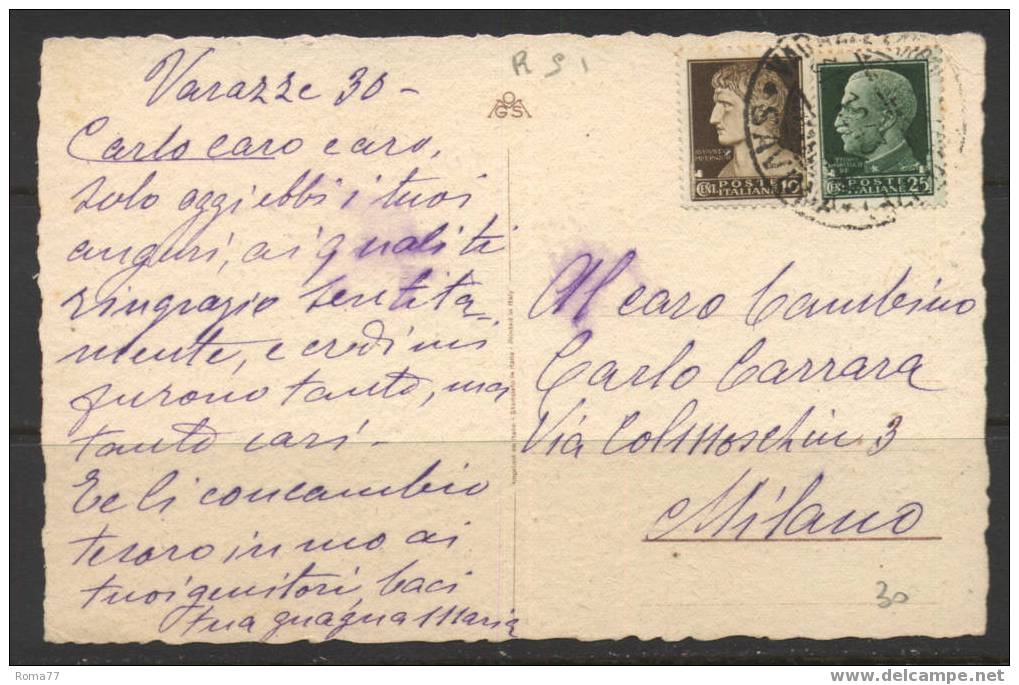 R S I
Varazze 30 -
Carlo caro caro,
solo oggi ebbi i tuoi
auguri, ai quali ti
ringrazio sentita-
mente, e credi mi
furono tanto, ma
tanto cari -
Te li concambio
tesoro in mo ai
tuoi genitori, baci
tua Maria
OGS
POSTE
ITALIANE
CENT. 10
POSTE
ITALIANE
CEN. 25
Printed in Italy
Al caro bambino
Carlo Carrara
Via 3
Milano
30
Roma77
www.delcampe.net